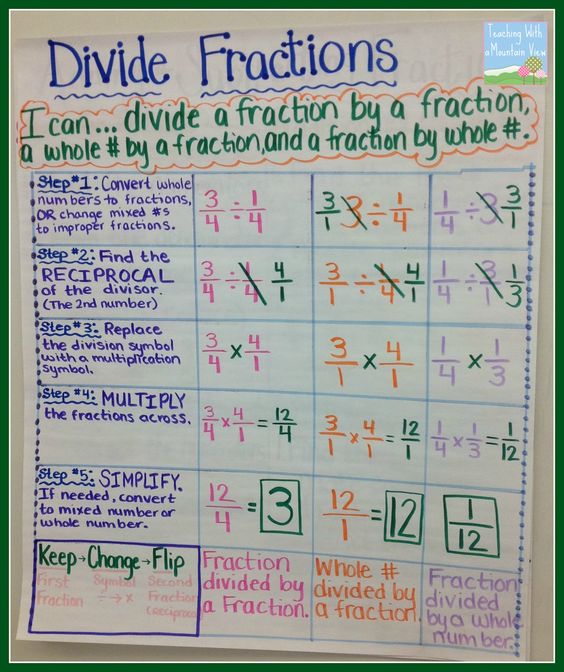 Teaching With
a Mountain View
Divide Fractions
I can... divide a fraction by a fraction,
a whole # by a fraction, and a fraction by whole #.
Step #1: Convert whole
numbers to fractions,
OR change mixed #s
to improper fractions.
3/4 ÷ 1/4
3/1 3 ÷ 1/4
1/4 ÷ 3 3/1
Step #2: Find the
RECIPROCAL
of the divisor.
(The 2nd number)
3/4 ÷ 1/4 4/1
3/1 ÷ 1/4 4/1
1/4 ÷ 3/1 1/3
Step #3: Replace
the division symbol
with a multiplication
symbol.
3/4 x 4/1
3/1 x 4/1
1/4 x 1/3
Step #4: MULTIPLY
the fractions across.
3/4 x 4/1 = 12/4
3/1 x 4/1 = 12/1
1/4 x 1/3 = 1/12
Step #5: SIMPLIFY.
If needed, convert
to mixed number or
whole number.
12/4 = 3
12/1 = 12
1/12
Keep→Change→Flip
First Symbol Second
Fraction ÷→x Fraction
(Reciprocal)
Fraction
divided by
a Fraction.
Whole #
divided by
a fraction.
Fraction
divided
by a whole
number.